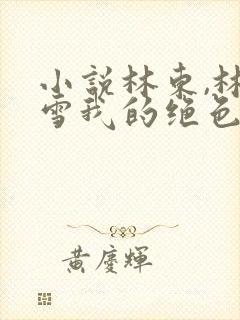 小說林東,林
雪我的绝色
黃慶輝